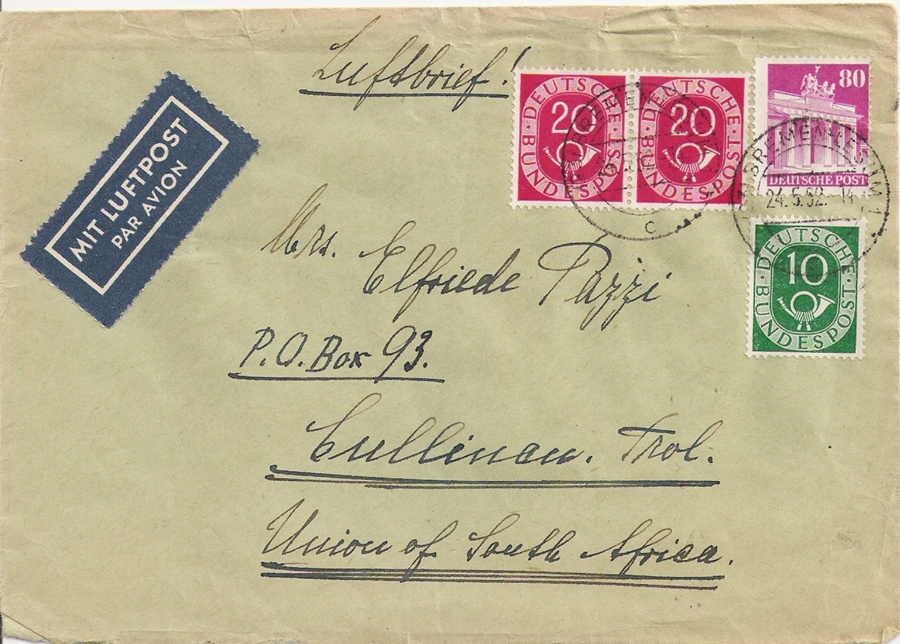 Luftbrief!
MIT LUFTPOST
PAR AVION
20
DEUTSCHE BUNDESPOST
20
DEUTSCHE BUNDESPOST
80
DEUTSCHE POST
24.5.52.-14
C
10
DEUTSCHE BUNDESPOST
Mrs. Elfriede Pazzi
P.O. Box 93.
Cullinan. Trol.
Union of South Africa.